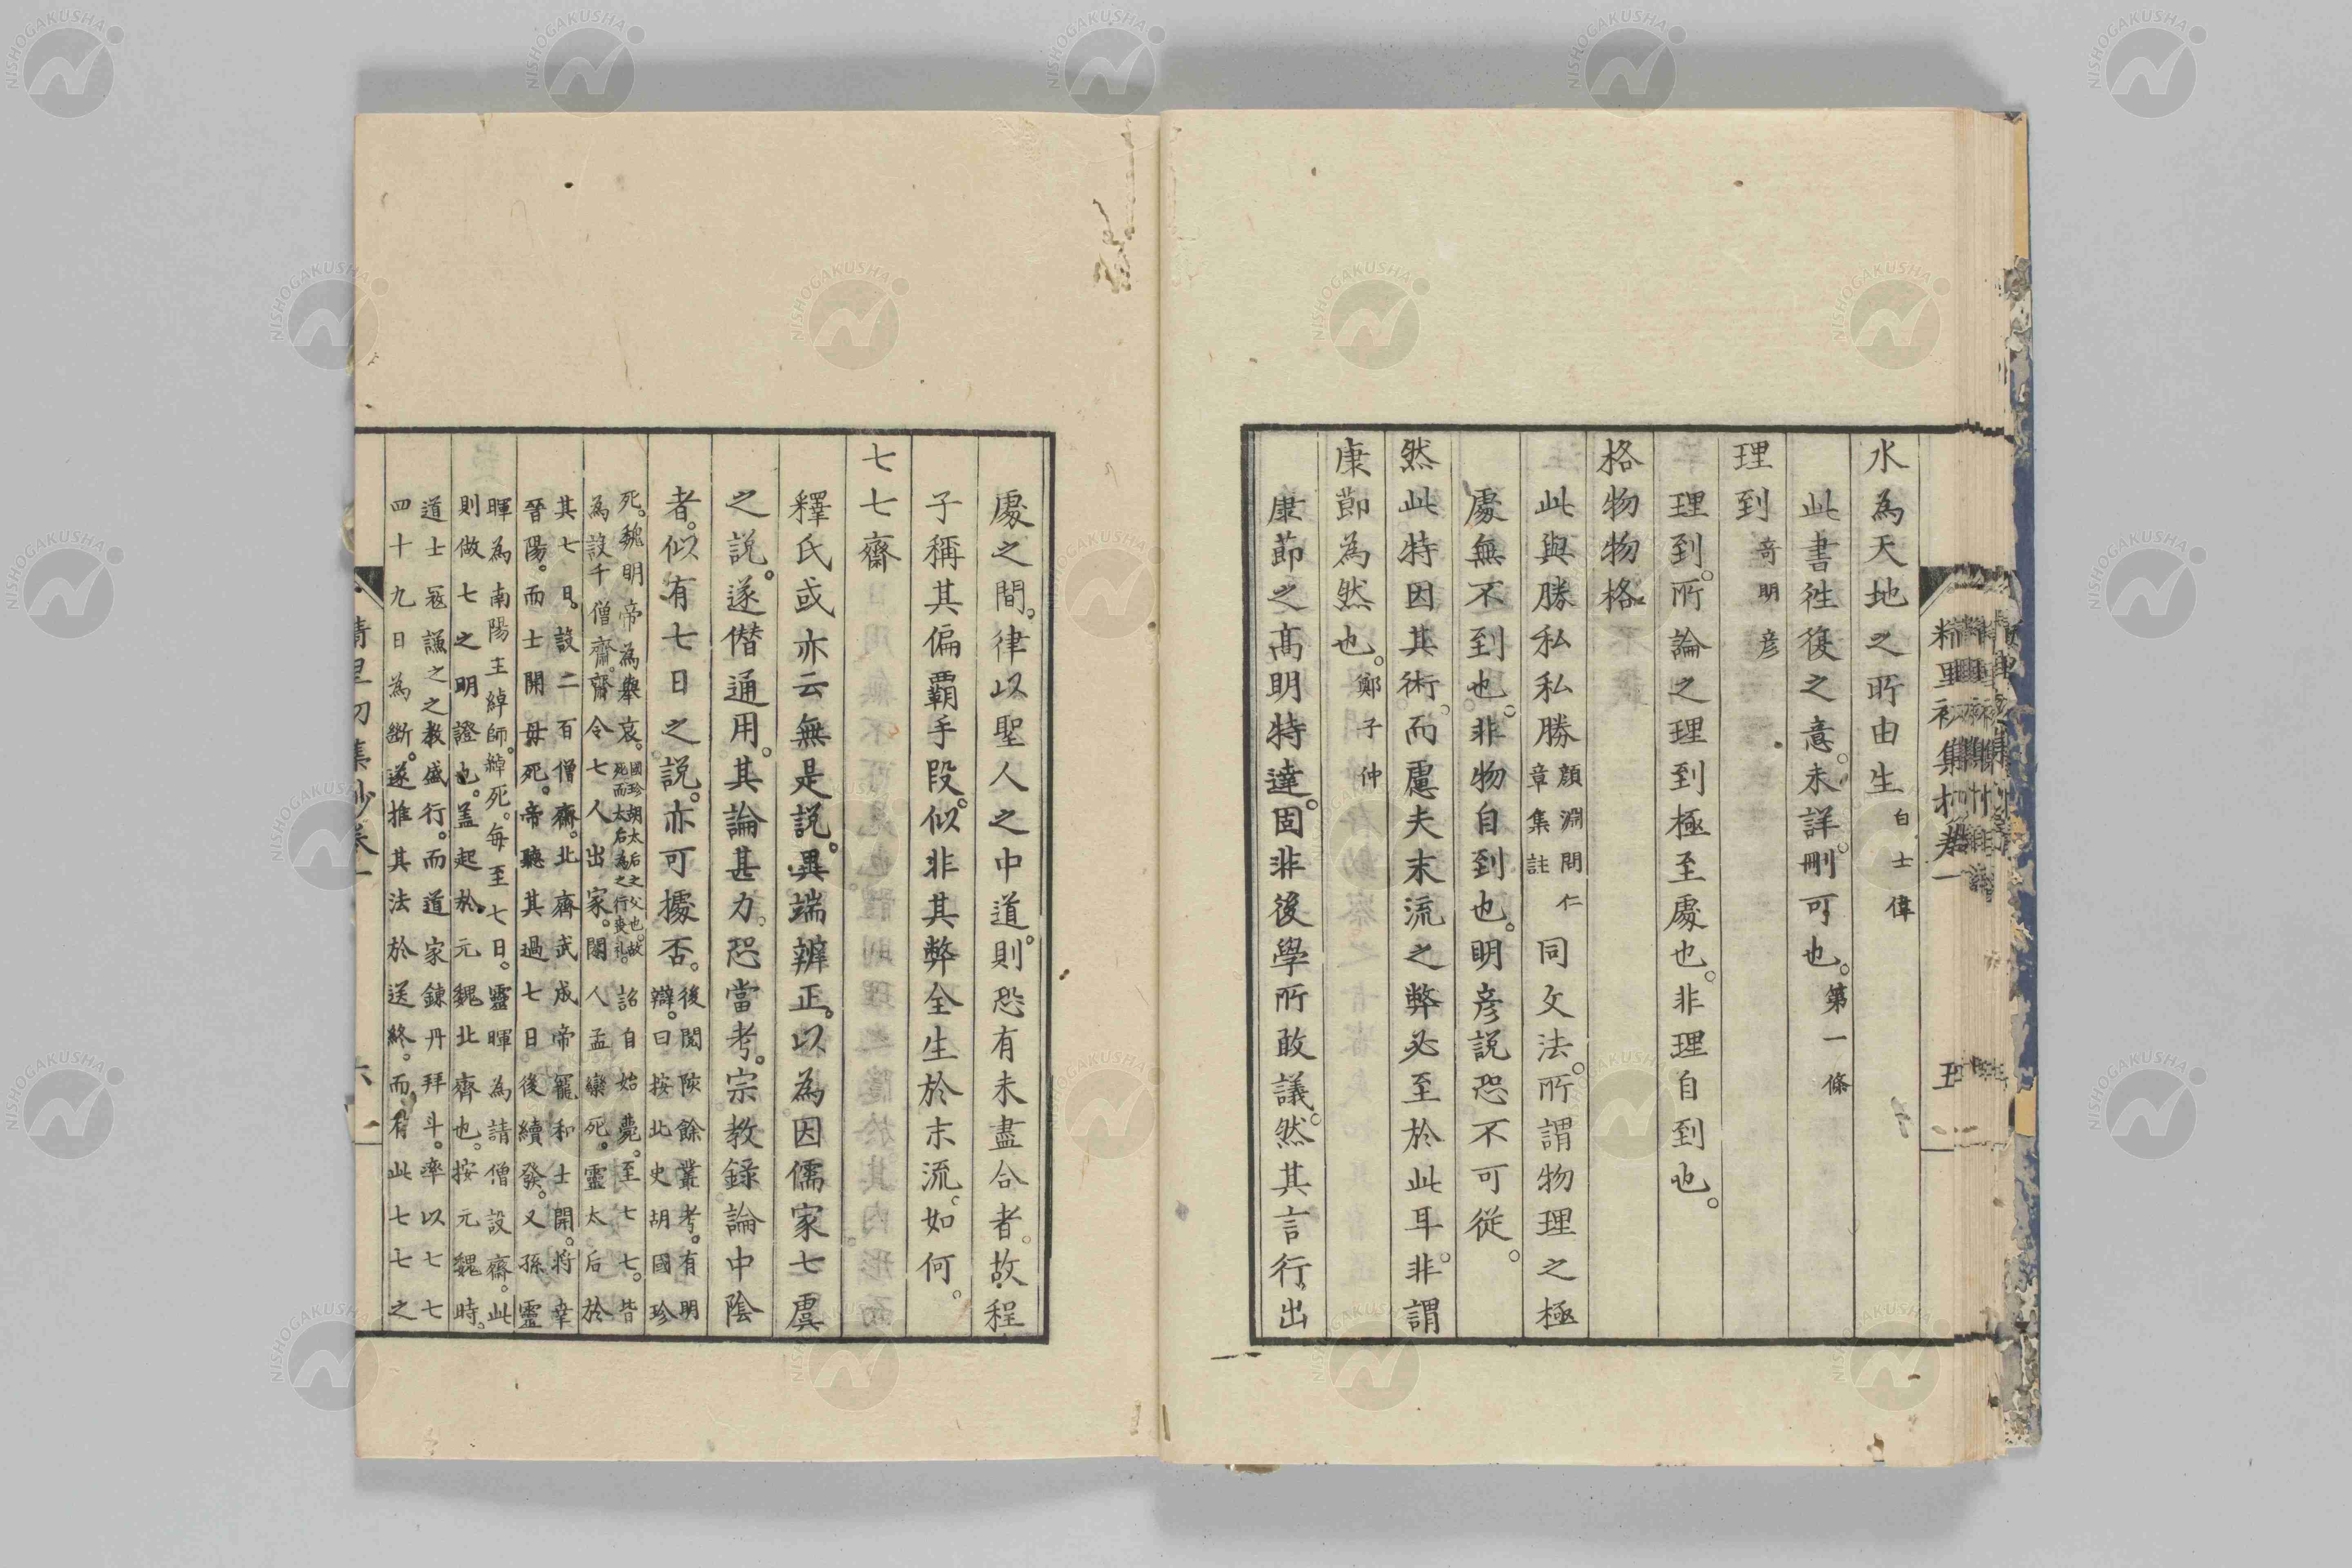 水為天地之所由生 白士偉
此書往復之意。未詳。刪可也。第一條
理到 奇明彥
理到。所論之理到極至處也。非理自到也。
格物物格
此與勝私私勝 顏淵問仁
章集註
同文法。所謂物理之極
處無不到也。非物自到也。明彥說恐不可從。
然此特因其術。而慮夫末流之弊必至於此耳。非謂
康節為然也。鄭子仲
康節之高明特達。固非後學所敢議。然其言行。出
處之間。律以聖人之中道。則恐有未盡合者。故程
子稱其偏霸手段。似非其弊全生於末流。如何。
七七齋
釋氏或亦云無是說。異端辨正。以為因儒家七虞
之說。遂僭通用。其論甚力。恐當考。宗教錄論中陰
者。似有七日之說。亦可據否。
後閱陔餘叢考。有明
辯。曰按北史胡國珍
死。魏明帝為舉哀。
國珍胡太后之父也。故
死而太后為之行喪礼。
詔自始薨。至七七。皆
為設千僧齋。齋令七人出家。閹人孟欒死。靈太后於
其七日。設二百僧齋。北齊武成帝寵和士開。將幸
晉陽。而士開母死。帝聽其過七日後續發。又孫靈
暉為南陽王綽師。綽死。每至七日。靈暉為請僧設齋。此
則做七之明證也。蓋起於元魏北齊也。按元魏時。
道士寇謙之之教盛行。而道家鍊丹拜斗。率以七七
四十九日為斷。遂推其法於送終。而有此七七之